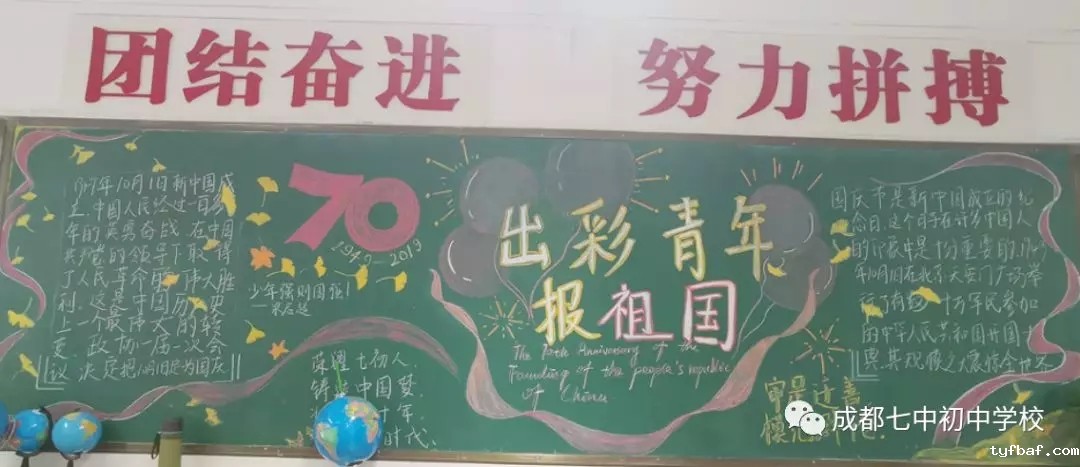 团结奋进 努力拼搏
1949年10月1日新中国成
立.中国人民经过一百多
年的英勇奋战.在中国
共产党的领导下取得
了人民革命的伟大胜
利.这是中国历史
上一个最伟大的转
变.政协一届一次会
议决定把10月1日定为国庆
70
1949-2019
少年强则国强!
——梁启超
七初人.
中国梦.
年.
时代.
出彩青年
报祖国
The 70th Anniversary of the
Founding of the people's republic
of China
国庆节是新中国成立的纪
念日.这个日子在许多中国人
的印象中是一份重要的.1949
年10月1日在北京天安门广场举
行了有数十万军民参加
的中华人民共和国开国大
典.其规模之大震惊全世界
审是迁善
模范
成都七中初中学校
tyfbaf.com